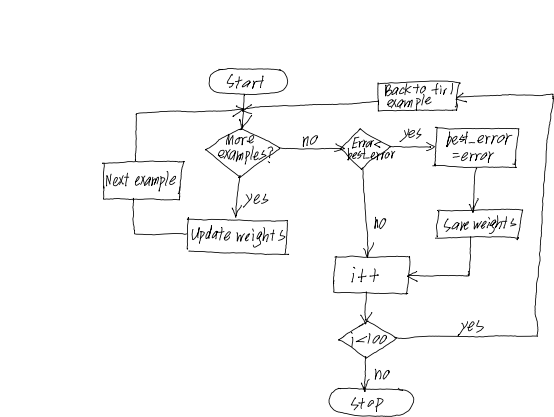 Start
Back to firl
example
More
examples?
no
Error<
best_error
yes
best_error
=error
Next example
yes
Update weights
no
Save weights
i++
i<100
yes
no
Stop